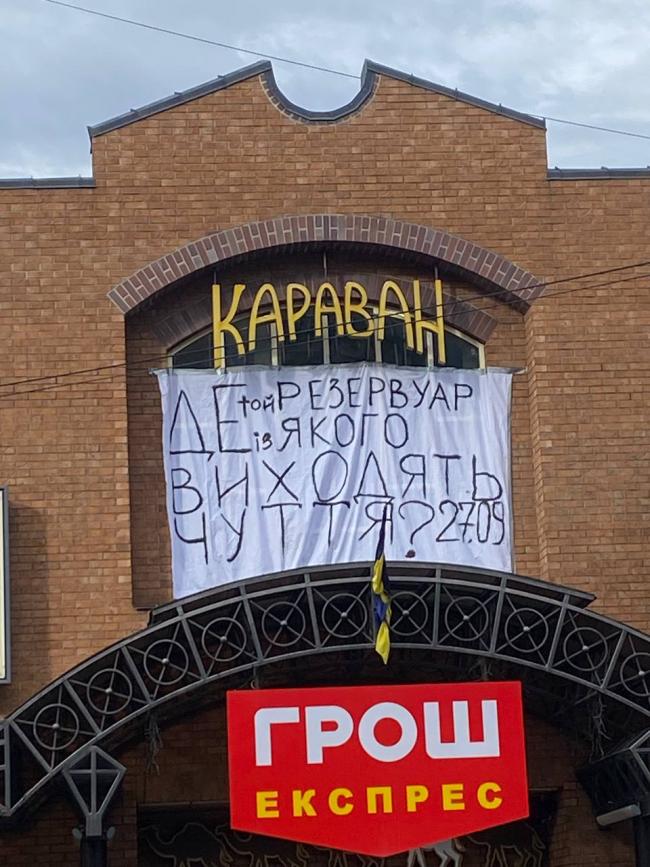 КАРАВАН
ДЕ той РЕЗЕРВУАР
із ЯКОГО
ВИХОДЯТЬ
ЧУТТЯ? 27.09
ГРОШ
ЕКСПРЕС